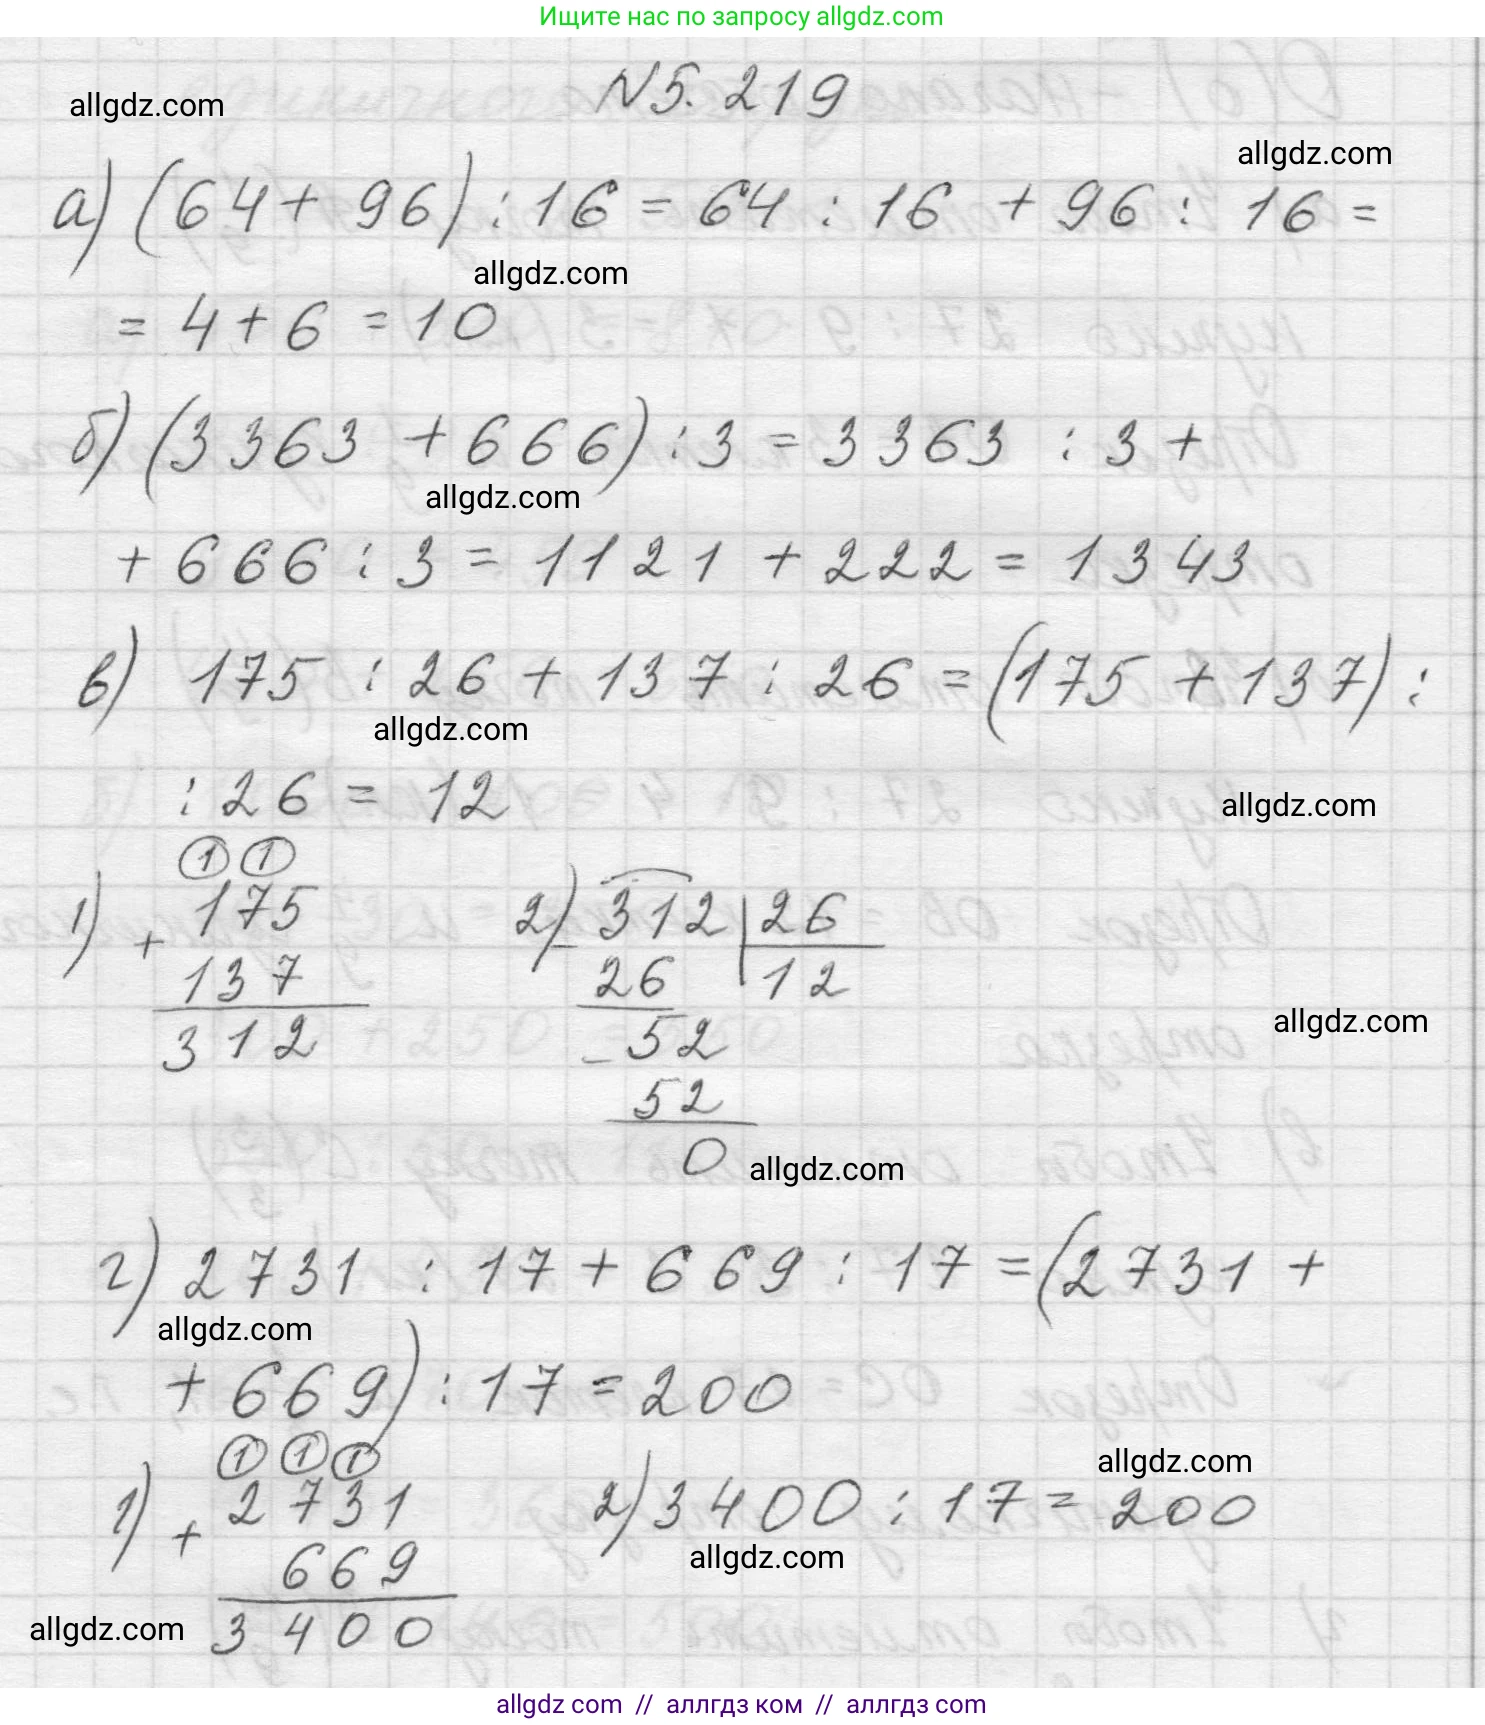 Ищите нас по запросу allgdz.com
N5.219
allgdz.com
allgdz.com
а) (64 + 96) : 16 = 64 : 16 + 96 : 16 =
allgdz.com
= 4 + 6 = 10
б) (3363 + 666) : 3 = 3363 : 3 +
allgdz.com
+ 666 : 3 = 1121 + 222 = 1343
в) 175 : 26 + 137 : 26 = (175 + 137) :
allgdz.com
: 26 = 12
allgdz.com
1 1
1) + 175
137
312
2) - 312 26
26 12
- 52
52
0
allgdz.com
allgdz.com
г) 2731 : 17 + 669 : 17 = (2731 +
allgdz.com
+ 669) : 17 = 200
1 1 1
1) + 2731
669
3400
allgdz.com
2) 3400 : 17 = 200
allgdz.com
allgdz.com
allgdz.com // аллгдз ком // аллгдз.com